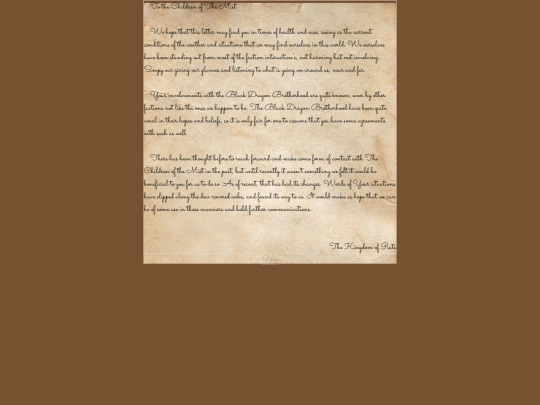 To the Children of The Mist
We hope that this letter may find you in times of health and ease, seeing as the current
conditions of the weather and situations that we may find ourselves in this world. We ourselves
have been standing out from most of the faction interaction's, not harming but not involving.
Simpy our giving our glances and listening to what is going on around us, near and far.
Your involvements with the Black Dragon Brotherhood are quite known, even by other
factions not like the ones we happen to be. The Black Dragon Brotherhood have been quite
vocal in their hopes and beliefs, so it is only fair for one to assume that you have some agreements
with such as well.
There has been thought before to reach forward and make some form of contact with The
Children of the Mist in the past, but until recently it wasn't something we felt it would be
beneficial to you for us to do so. As of recent, that has had its changes. Words of Your situations
have slipped along the dew-covered webs, and found its way to us. It would make us hope that we can
be of some use in these manners and hold further communications.
The Kingdom of